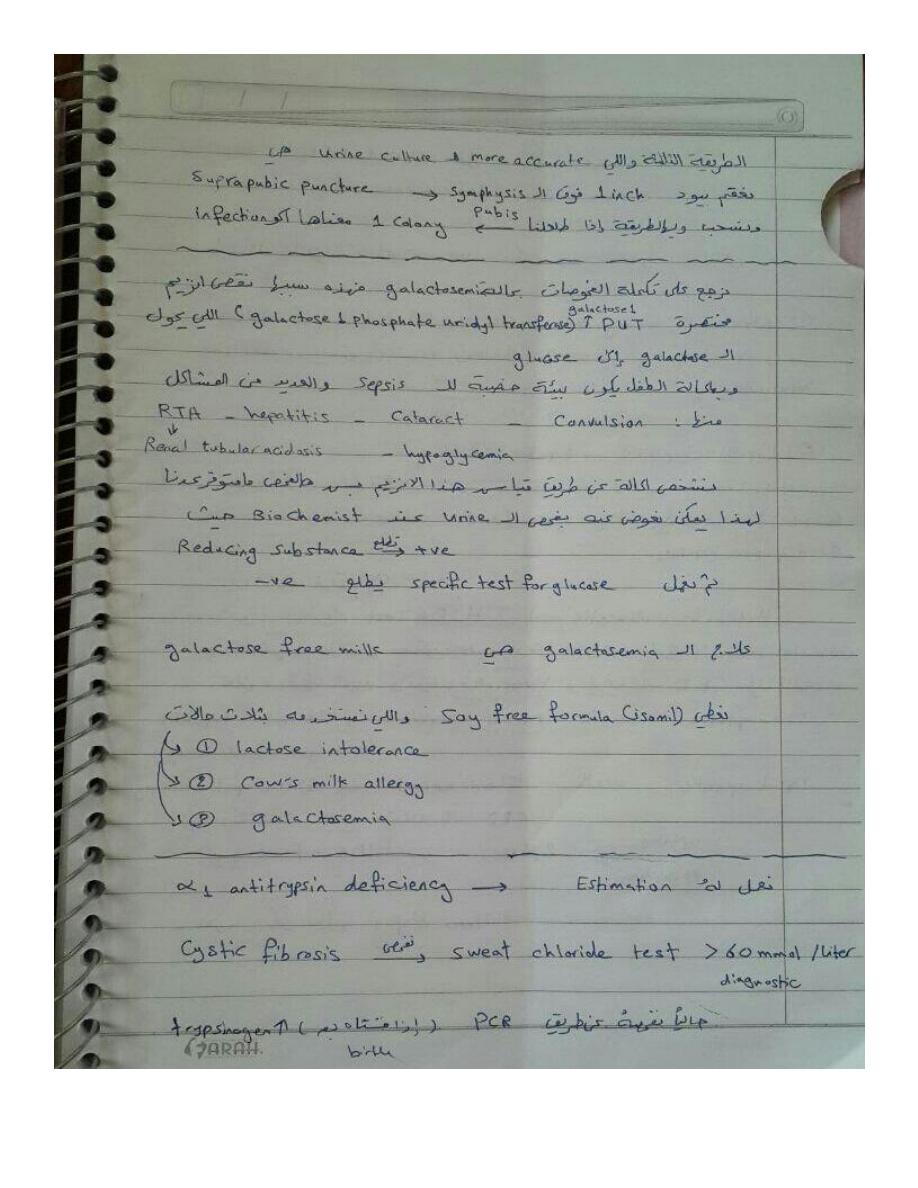 الطريقة الثالثة واللي more accurate لـ urine culture هي
نعقم بيود 1 inch فوق الـ Symphysis → Suprapubic puncture
pubis
ونسحب وبهالطريقة إذا طلعلنا 1 colony معناها أكو infection
نرجع على تكملة الفحوصات بحالة galactosemia فهذه سببها نقص انزيم
galactose 1
مختصرة PUT ↑ (galactose 1 phosphate uridyl transferase) اللي يحول
الـ galactose إلى glucose
وبهالحالة الطفل يكون بيئة خصبة للـ Sepsis والعديد من المشاكل
منها : Convulsion - Cataract - hepatitis - RTA
Renal tubular acidosis - hypoglycemia
نشخص الحالة عن طريق قياس هذا الانزيم بس هالفحص مامتوفر عدنا
لهذا يمكن نعوض عنه بفحص الـ urine عند Biochemist حيث
Reducing substance تطلع +ve
ثم نعمل specific test for glucose يطلع -ve
علاج الـ galactosemia هي galactose free milk
نعطي Soy free formula (isomil) واللي نستخدمه بثلاث حالات
① lactose intolerance
② Cow's milk allergy
③ galactosemia
α1 antitrypsin deficiency → Estimation نعمل له
Cystic fibrosis نفحص sweat chloride test >60 mmol /Liter
diagnostic
حالياً نفحصه عن طريق PCR (إذا فتشناه بعد) trypsinogen↑
birth
FARAH.